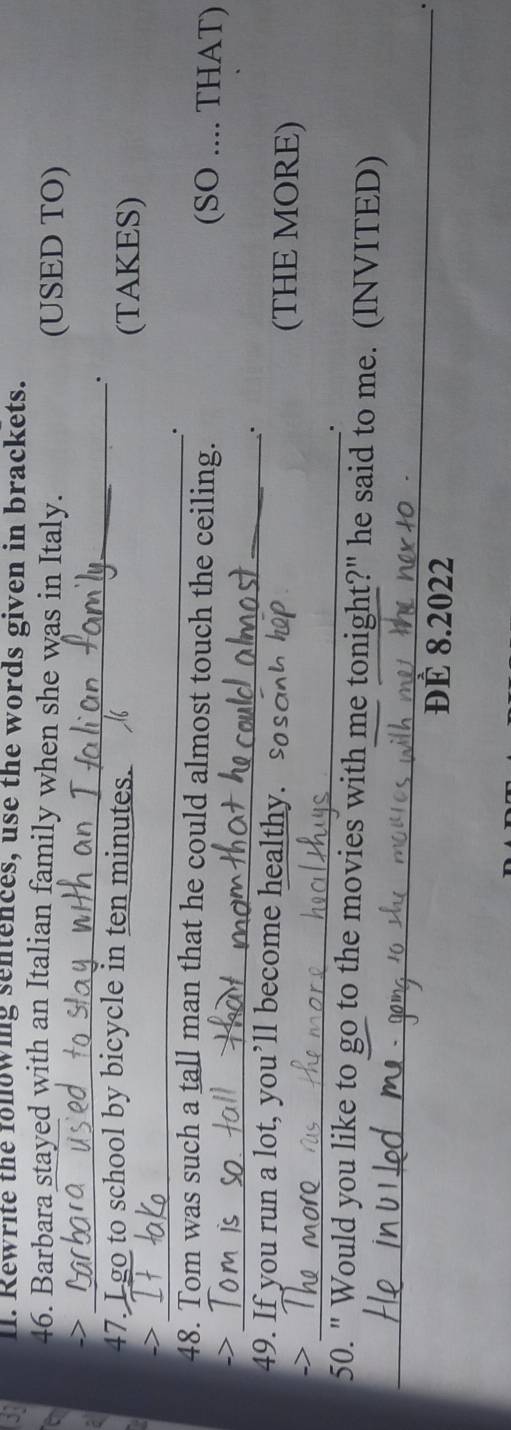 II. Rewrite the following sentences, use the words given in brackets.
46. Barbara stayed with an Italian family when she was in Italy. (USED TO)
-> Barbara used to stay with an Italian family .
47. I go to school by bicycle in ten minutes. (TAKES)
-> It take .
48. Tom was such a tall man that he could almost touch the ceiling. (SO .... THAT)
-> Tom is so tall that he could almost .
49. If you run a lot, you'll become healthy. so sánh kép (THE MORE)
-> The more the more healthys .
50. " Would you like to go to the movies with me tonight?" he said to me. (INVITED)
He invited me going to the movies with me the next .
ĐỀ 8.2022